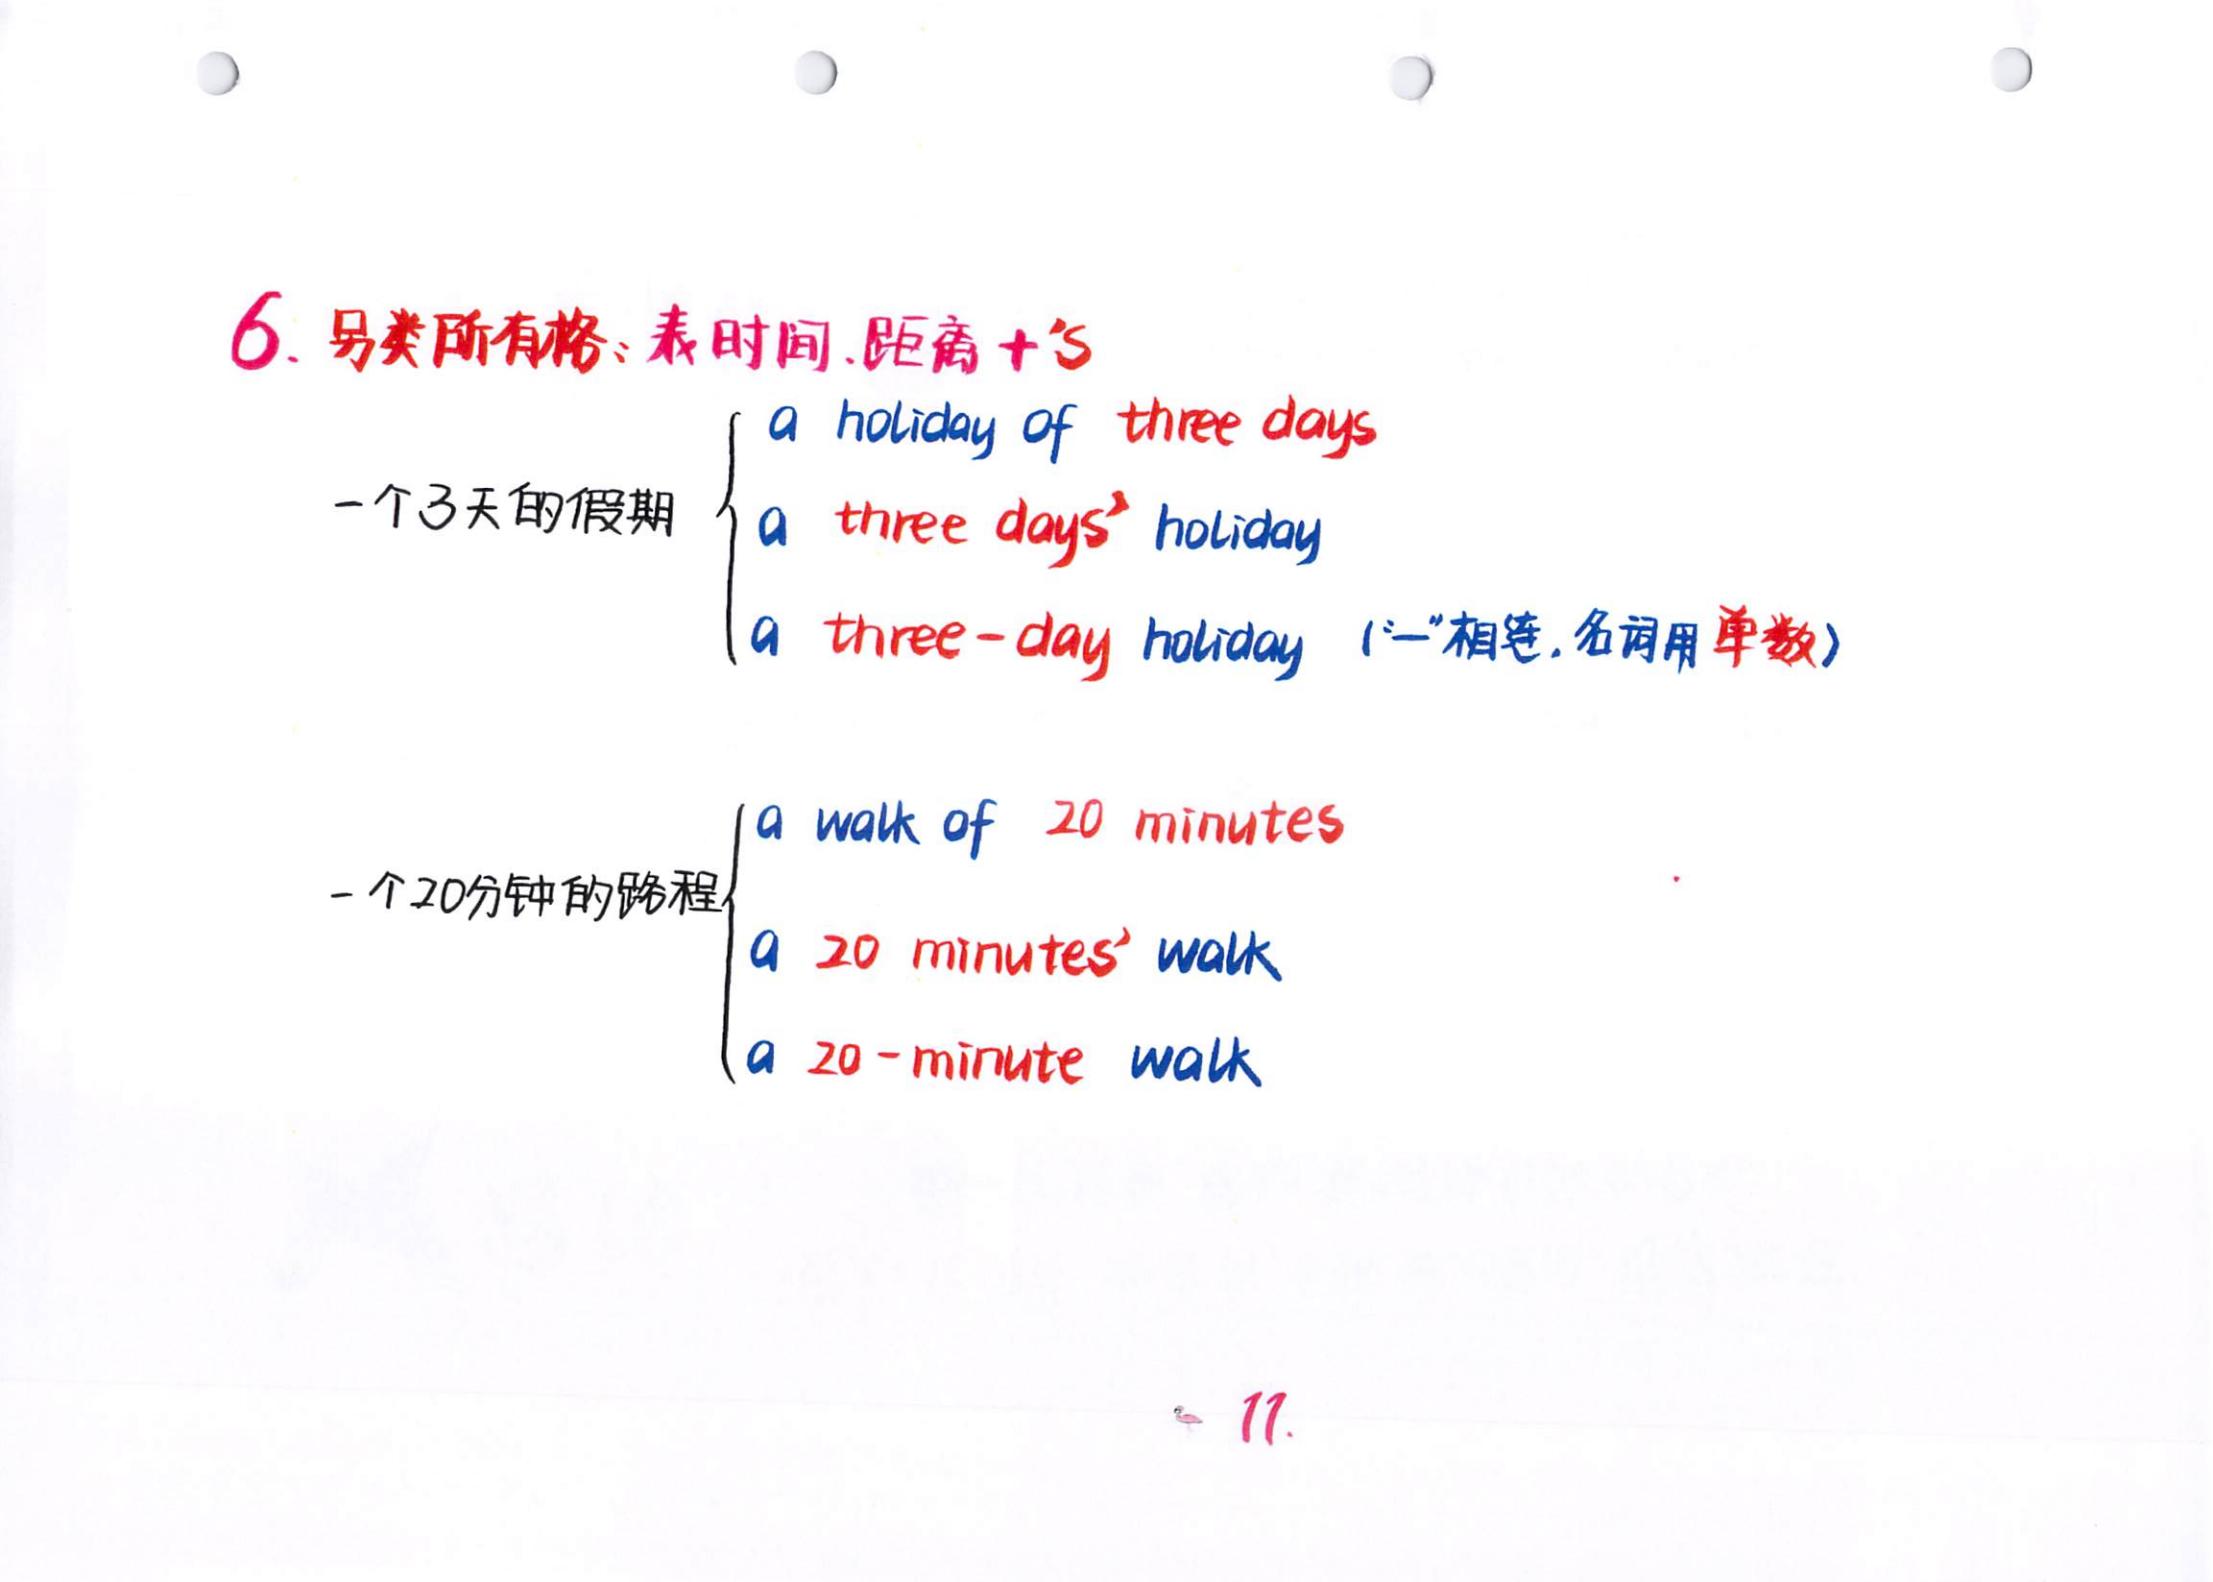 6. 另类所有格: 表时间.距离+'s
一个3天的假期
a holiday of three days
a three days' holiday
a three-day holiday ("—"相连,名词用单数)
一个20分钟的路程
a walk of 20 minutes
a 20 minutes' walk
a 20-minute walk
11.